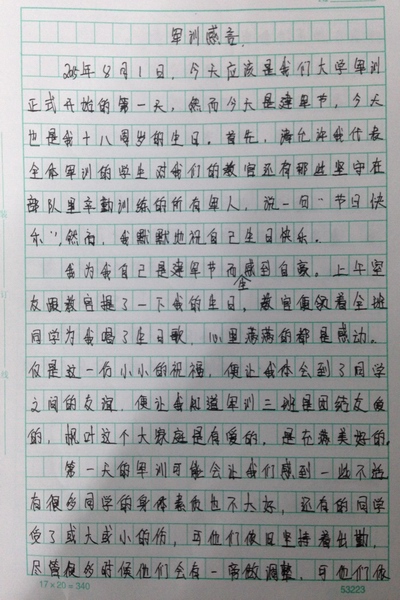 军训感言.
2015年8月1日,今天应该是我们大学军训
正式开始的第一天,然而今天是建军节,今天
也是我十八周岁的生日。首先,请允许我代表
全体军训的学生对我们的教官还有那些坚守在
部队里辛勤训练的所有军人,说一句"节日快
乐",然而,我默默地祝自己生日快乐。
我为我自己是建军节而感到自豪,上午室
友跟教官提了一下我的生日,教官便领着全班
同学为我唱了生日歌,心里满满的都是感动。
仅是这一份小小的祝福,便让我体会到了同学
之间的友谊,便让我知道军训三班是团结友爱
的,枫叶这个大家庭是有爱的,是充满美好的。
第一天的军训可能会让我们感到一些不适
有很多同学的身体素质也不大好,还有的同学
受了或大或小的伤,可他们依旧坚持着出勤,
尽管很多时候他们会有一旁做调整,可他们依
17×20=340
53223